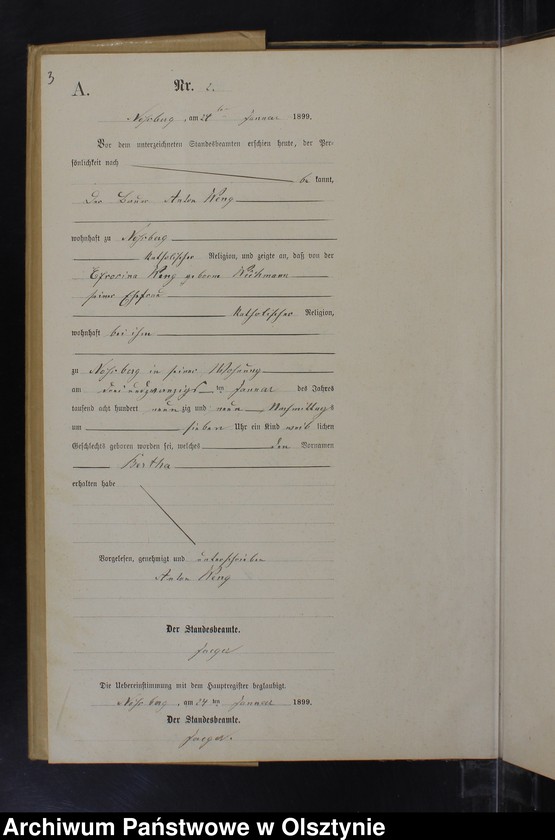 3
A.
Nr. 2.
am 24ten Januar 1899.
Vor dem unterzeichneten Standesbeamten erschien heute, der Per-
sönlichkeit nach
be kannt,
Der Bauer Anton Weng
wohnhaft zu
katholischer Religion, und zeigte an, daß von der
Weng geborene
seiner Ehefrau
katholischer Religion,
wohnhaft bei ihm
zu in seiner Wohnung
am dreiundzwanzigsten Januar des Jahres
tausend acht hundert neunzig und neun Nachmittags
um sieben Uhr ein Kind weiblichen
Geschlechts geboren worden sei, welches den Vornamen
Bertha
erhalten habe
Vorgelesen, genehmigt und unterschrieben
Anton Weng
Der Standesbeamte.
Jaeger
Die Uebereinstimmung mit dem Hauptregister beglaubigt.
am 24ten Januar 1899.
Der Standesbeamte.
Jaeger.
Archiwum Państwowe w Olsztynie